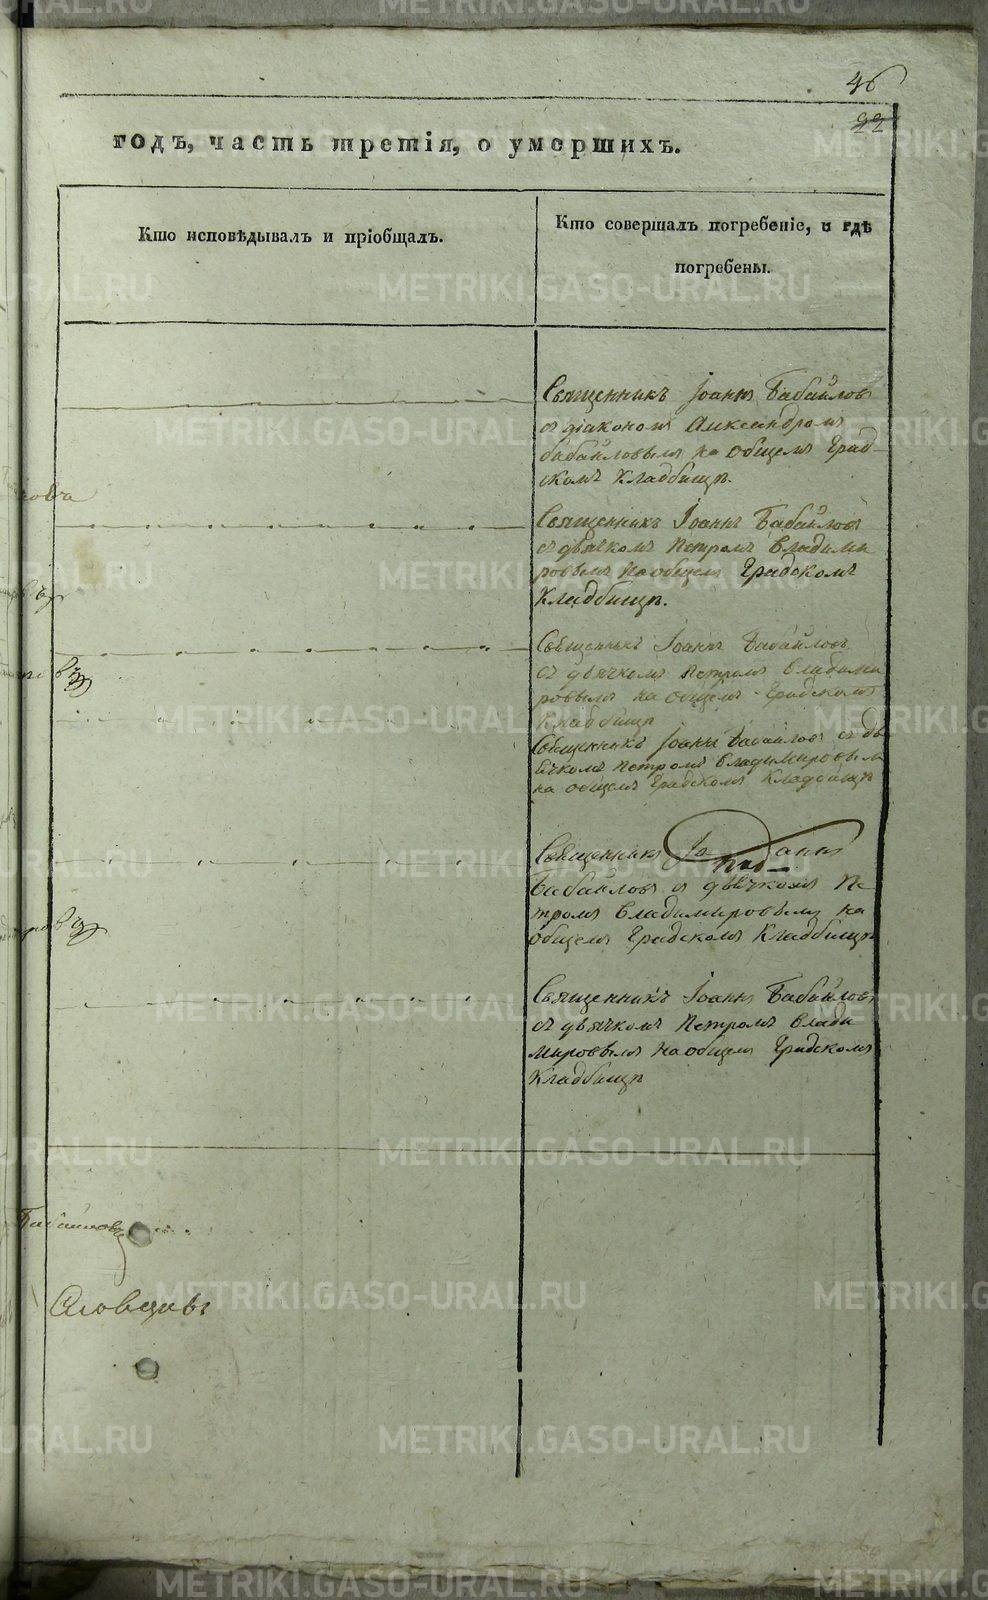 46
22
годъ, часть третія, о умершихъ.
Кто исповѣдывалъ и пріобщалъ.
Кто совершалъ погребеніе, и гдѣ
погребены.
Священникъ Іоаннъ Бабайловъ
съ діакономъ Александромъ
бабайловымъ на общемъ Град-
скомъ Кладбищѣ.
Священникъ Іоаннъ Бабайловъ
съ дьячкомъ Петромъ Владими
ровымъ на общемъ Градскомъ
Кладбищѣ.
Священникъ Іоаннъ Бабайловъ
съ дьячкомъ Петромъ Владими
ровымъ на общемъ Градскомъ
Кладбищѣ
Священникъ Іоаннъ Бабайловъ съ дь
ячкомъ Петромъ Владимировымъ
на общемъ Градскомъ Кладбищѣ
Священникъ Іоаннъ
Бабайловъ съ дьячкомъ Пе
тромъ Владимировымъ на
общемъ Градскомъ Кладбищѣ
Священникъ Іоаннъ Бабайловъ
съ дьячкомъ Петромъ Влади
мировымъ на общемъ Градскомъ
Кладбищѣ
Бабайловъ
METRIKI.GASO-URAL.RU